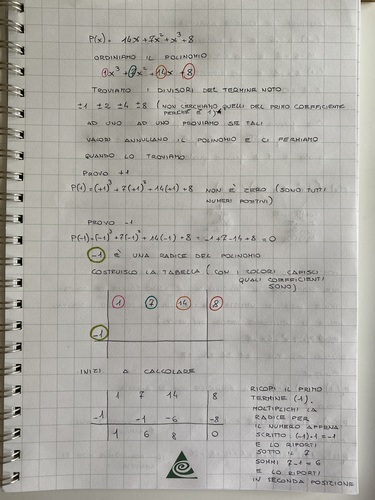 P(x) = 14x + 7x² + x³ + 8
ORDINIAMO IL POLINOMIO
1x³ + 7x² + 14x + 8
TROVIAMO I DIVISORI DEL TERMINE NOTO
±1 ±2 ±4 ±8 (NON CERCHIAMO QUELLI DEL PRIMO COEFFICIENTE
PERCHÈ È 1)
AD UNO AD UNO PROVIAMO SE TALI
VALORI ANNULLANO IL POLINOMIO E CI FERMIAMO
QUANDO LO TROVIAMO
PROVO +1
P(1) = (+1)³ + 7(+1)² + 14(+1) + 8 NON È ZERO (SONO TUTTI
NUMERI POSITIVI)
PROVO -1
P(-1) = (-1)³ + 7(-1)² + 14(-1) + 8 = -1 + 7 - 14 + 8 = 0
-1 È UNA RADICE DEL POLINOMIO
COSTRUISCO LA TABELLA (CON I COLORI CAPISCI
QUALI COEFFICIENTI
SONO)
1 7 14 8
-1
INIZI A CALCOLARE
1 7 14 8
-1 -1 -6 -8
1 6 8 0
RICOPI IL PRIMO
TERMINE (1).
MOLTIPLICHI LA
RADICE PER
IL NUMERO APPENA
SCRITTO (-1)·1 = -1
E LO RIPORTI
SOTTO IL 7
SOMMI 7-1 = 6
E LO RIPORTI
IN SECONDA POSIZIONE